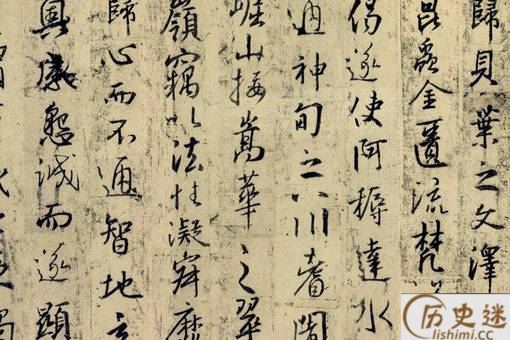 歸貝葉之文澤
昆蟲金匱流梵
偈遂使阿耨達水
通神甸之八川耆闍
崛山接嵩華之翠
嶺竊以法性凝寂靡
歸心而不通智地玄
奧感懇誠而遂顯
历史迷
lishimi.cc